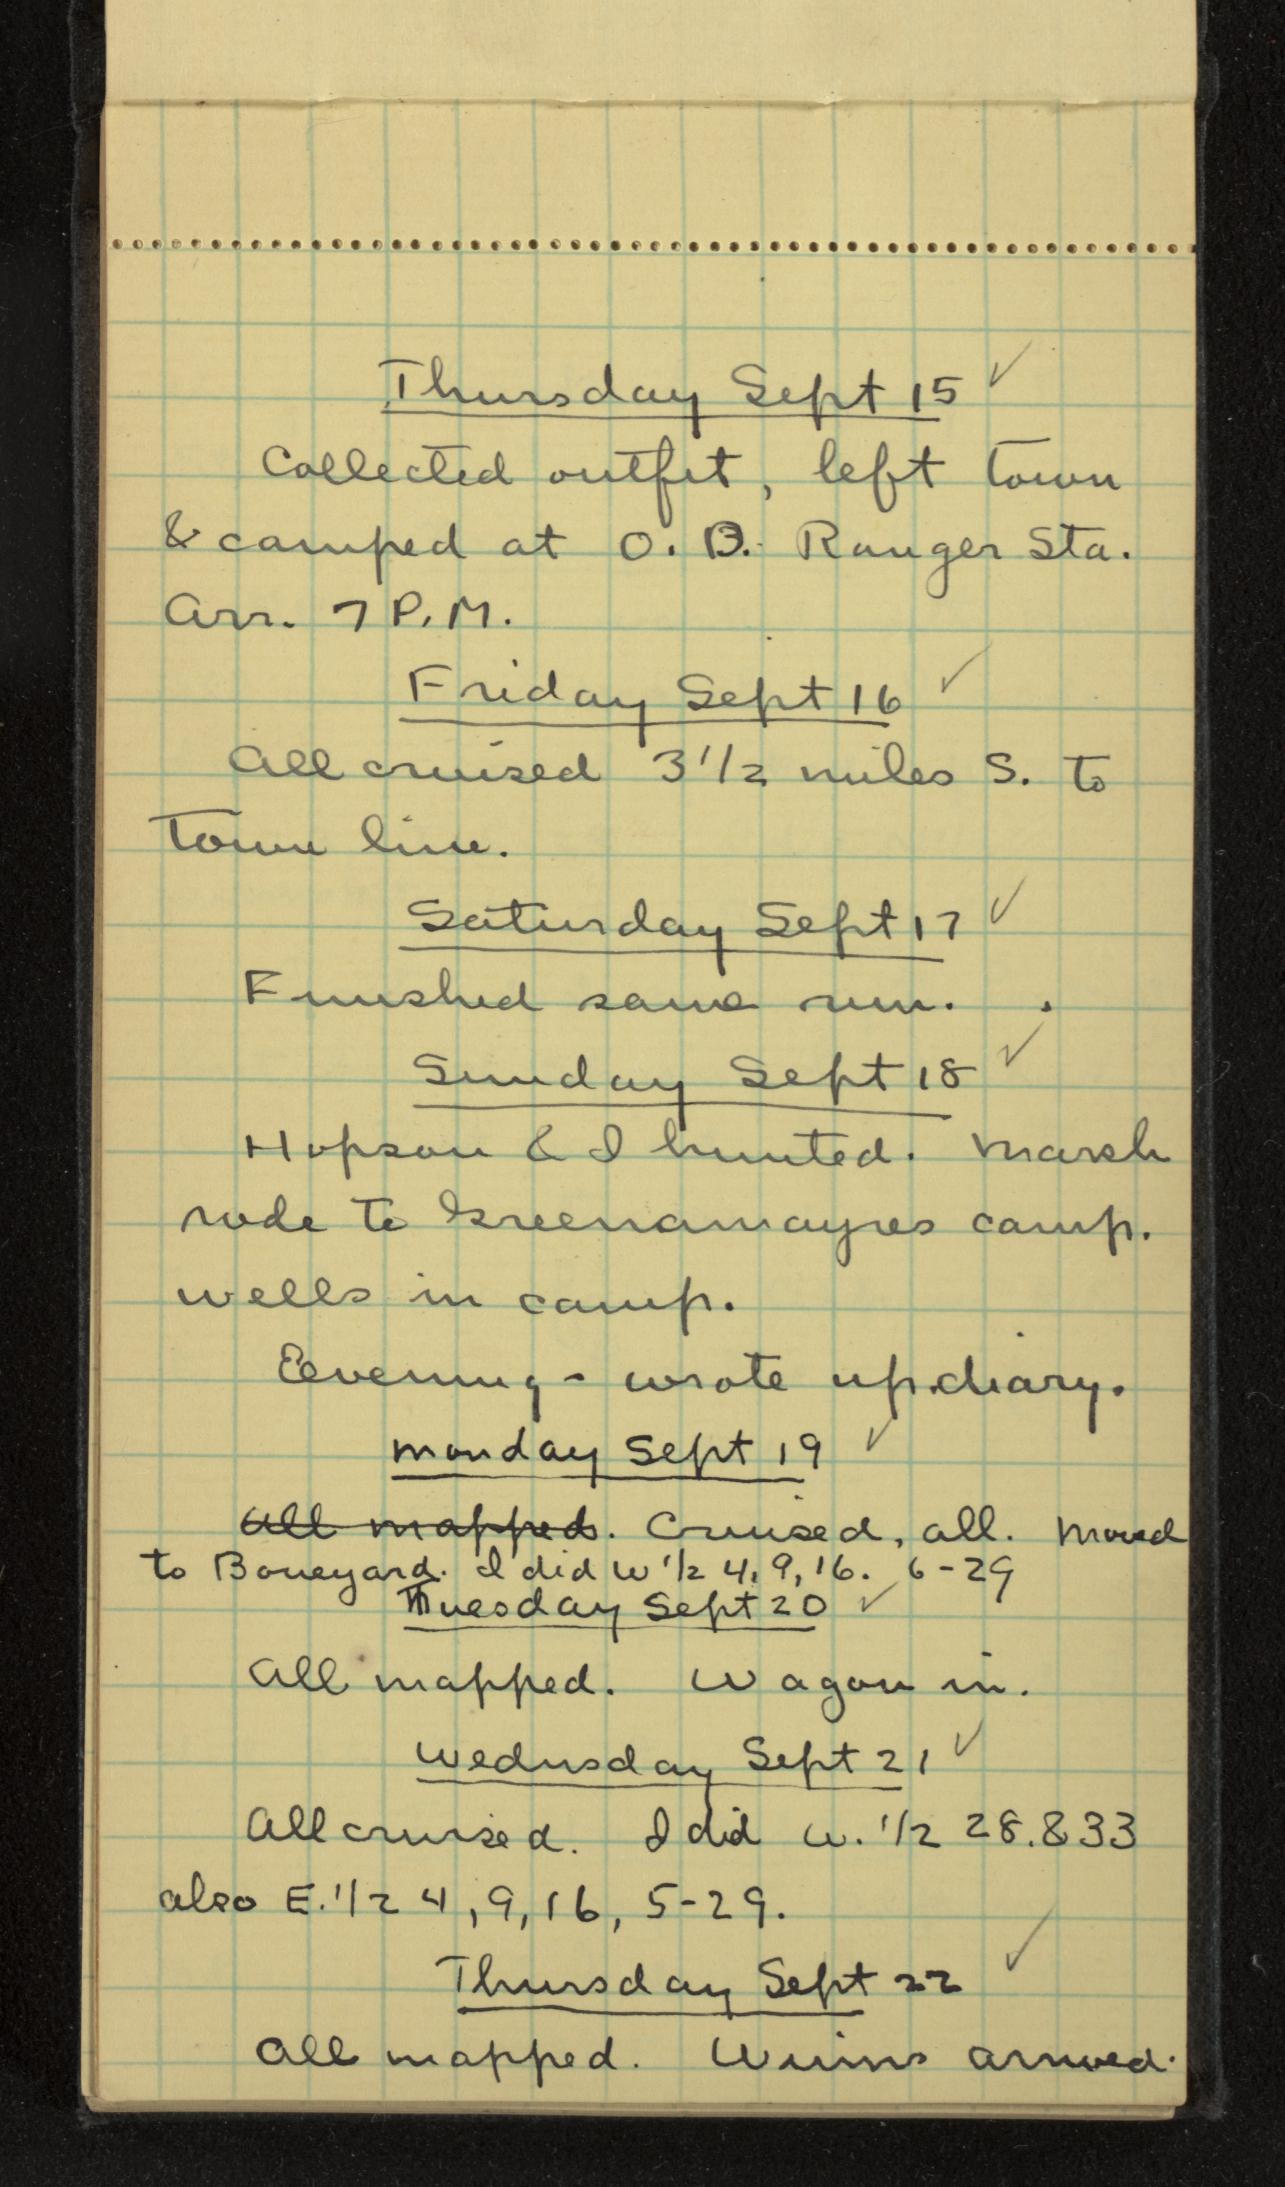 Thursday Sept 15 ✓
Collected outfit, left town
& camped at O. D. Ranger Sta.
Arr. 7 P.M.
Friday Sept 16 ✓
All cruised 3 1/2 miles S. to
town line.
Saturday Sept 17 ✓
Finished same run.
Sunday Sept 18 ✓
Hopson & I hunted. Marsh
rode to Greenamayres camp.
Wells in camp.
Eevening - wrote up diary.
Monday Sept 19 ✓
All mapped. Cruised, all. Moved
to Boneyard. I did W 1/2 4, 9, 16. 6-29
Tuesday Sept 20 ✓
All mapped. Wagon in.
Wednsday Sept 21 ✓
All cruised. I did W. 1/2 28. & 33
also E. 1/2 4, 9, 16, 5-29.
Thursday Sept 22 ✓
All mapped. Winns arrived.